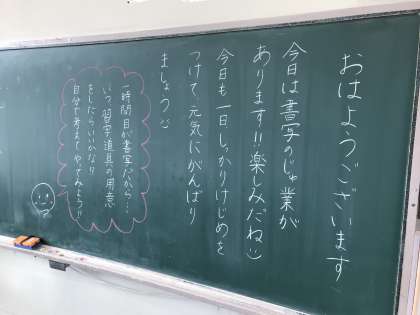 おはようございます
今日は書写のじゅ業が
あります!!楽しみだね:)
今日も一日しっかりけじめを
つけて、元気にがんばり
ましょう:)
一時間目が書写だから…
いつ習字道具の用意
をしたらいいかな!!
自分で考えてやってみよう!!